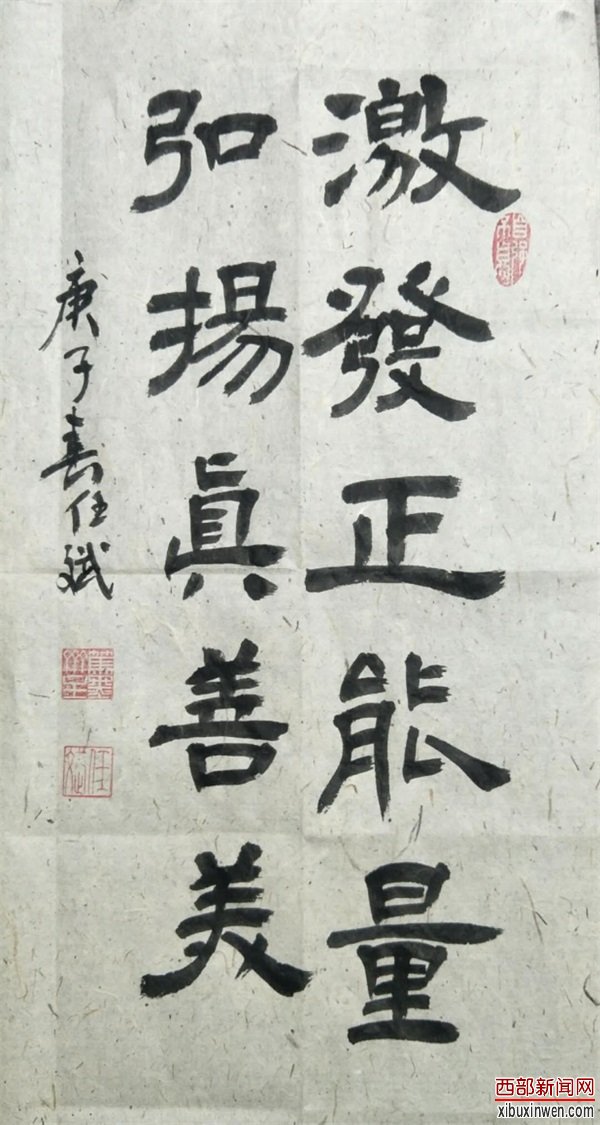 激發正能量
弘揚真善美
庚子春任斌
任斌
西部新闻网
xibuxinwen.com